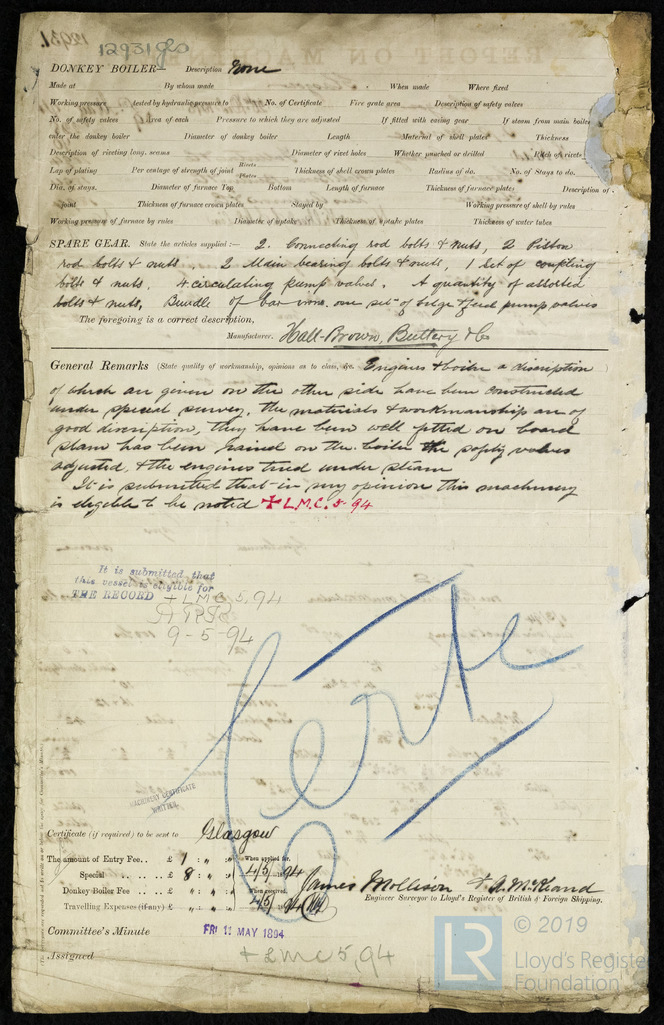 12931 Gls
DONKEY BOILER— Description None
Made at By whom made When made Where fixed
Working pressure tested by hydraulic pressure to No. of Certificate Fire grate area Description of safety valves
No. of safety valves Area of each Pressure to which they are adjusted If fitted with easing gear If steam from main boilers
enter the donkey boiler Diameter of donkey boiler Length Material of shell plates Thickness
Description of riveting long. seams Diameter of rivet holes Whether punched or drilled Pitch of rivets
Lap of plating Per centage of strength of joint Rivets Plates Thickness of shell crown plates Radius of do. No. of Stays to do.
Dia. of stays. Diameter of furnace Top Bottom Length of furnace Thickness of furnace plates Description of
joint Thickness of furnace crown plates Stayed by Working pressure of shell by rules
Working pressure of furnace by rules Diameter of uptake Thickness of uptake plates Thickness of water tubes
SPARE GEAR. State the articles supplied :— 2. Connecting rod bolts & nuts, 2 Piston
rod bolts & nuts. 2 Main bearing bolts & nuts, 1 Set of coupling
bolts & nuts, 4 circulating pump valves. A quantity of assorted
bolts & nuts, Bundle of bar iron, one set of bilge & feed pump valves
The foregoing is a correct description,
Manufacturer. Hall-Brown, Buttery & Co
General Remarks (State quality of workmanship, opinions as to class, &c. Engines & boiler a discription
of which are given on the other side have been constructed
under special survey, the materials & workmanship are of
good discription, they have been well fitted on board
steam has been raised on the boiler the safety valves
adjusted, & the engines tried under steam
It is submitted that in my opinion this machinery
is elegible to be noted + L.M.C. 5-94
It is submitted that
this vessel is eligible for
THE RECORD + LMC 5,94
9-5-94
Certe
MACHINERY CERTIFICATE
WRITTEN
Certificate (if required) to be sent to Glasgow
The amount of Entry Fee.. £ 1 : " : " When applied for,
Special .. £ 8 : " : " 4/5/94
Donkey Boiler Fee .. £ " : " : " When received,
Travelling Expenses (if any) £ " : " : " 4/5/94
James Mollison & A. McKeand
Engineer Surveyor to Lloyd's Register of British & Foreign Shipping.
Committee's Minute FRI 11 MAY 1894
Assigned + LMC 5,94
© 2019
LR Lloyd's Register
Foundation